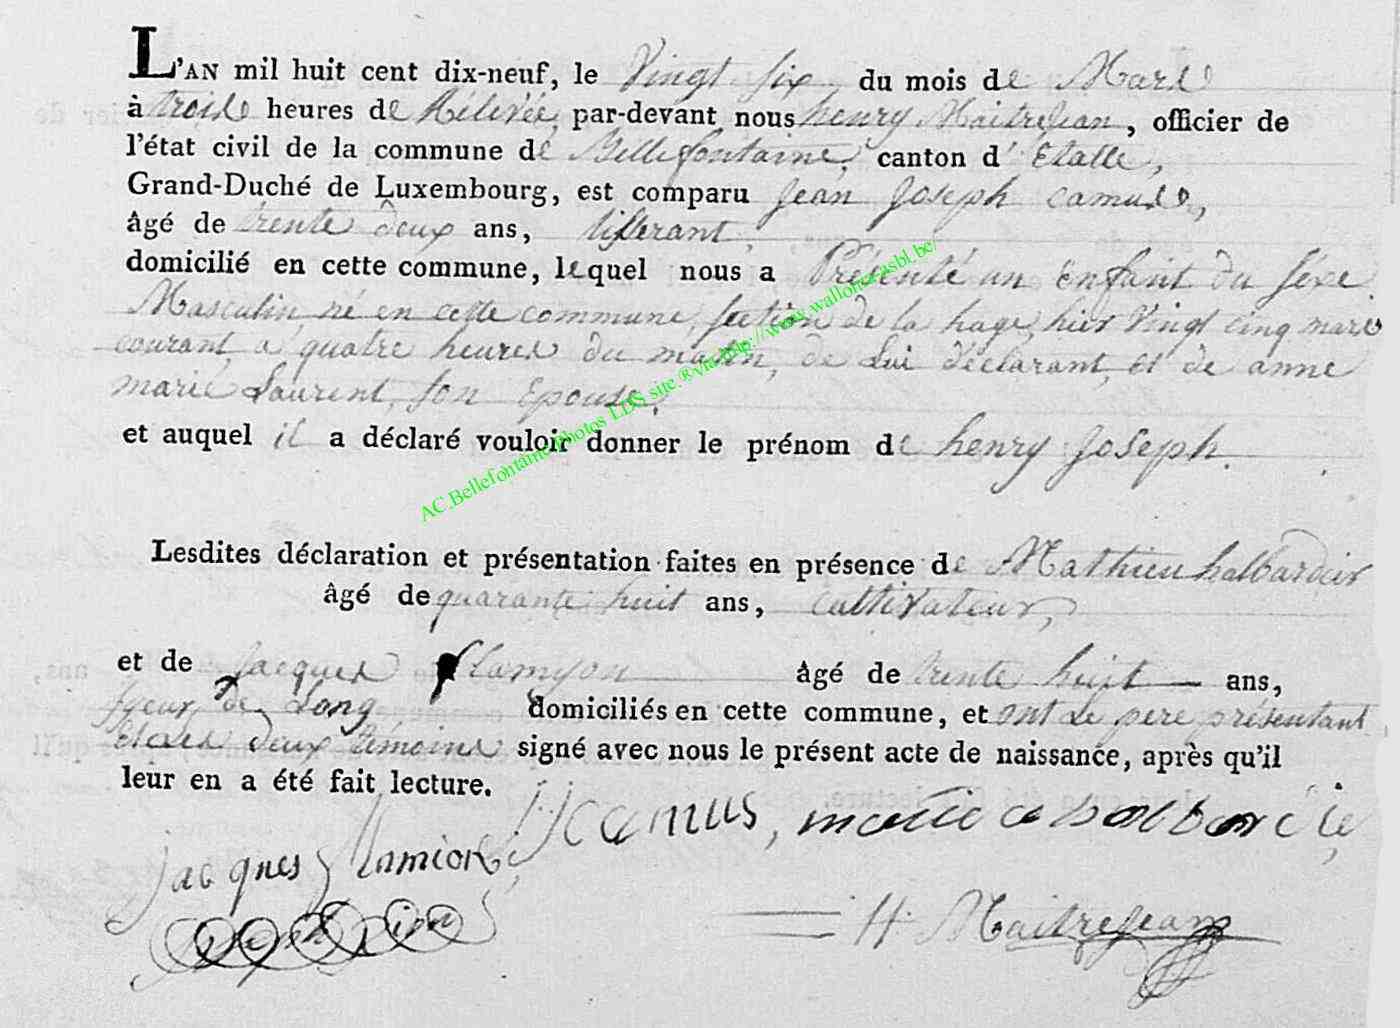 L'AN mil huit cent dix-neuf, le Vingt six du mois de Mars
à trois heures de Rélevée, par-devant nous henry Maitrejean, officier de
l'état civil de la commune de Bellefontaine, canton d' Etalle,
Grand-Duché de Luxembourg, est comparu Jean Joseph Camus,
âgé de trente deux ans, tisserant,
domicilié en cette commune, lequel nous a Présenté un Enfant du séxe
Masculin, né en cette commune, section de la hage, hier Vingt cinq mars
courant, a quatre heures du matin, de Lui déclarant, et de anne
marie Laurent, son Epouse,
et auquel il a déclaré vouloir donner le prénom de henry Joseph.
AC Bellefontaine Photos LDS site ® via http://www.wallonia-asbl.be/
Lesdites déclaration et présentation faites en présence de Mathieu halbardier
âgé de quarante huit ans, Cultivateur,
et de Jacques Flamyon âgé de trente huit ans,
syeur de Long domiciliés en cette commune, et ont Le pere présentant
Et ces deux témoins signé avec nous le présent acte de naissance, après qu'il
leur en a été fait lecture.
JJ camus, halbardie
jacques flamion
H. Maitrejean